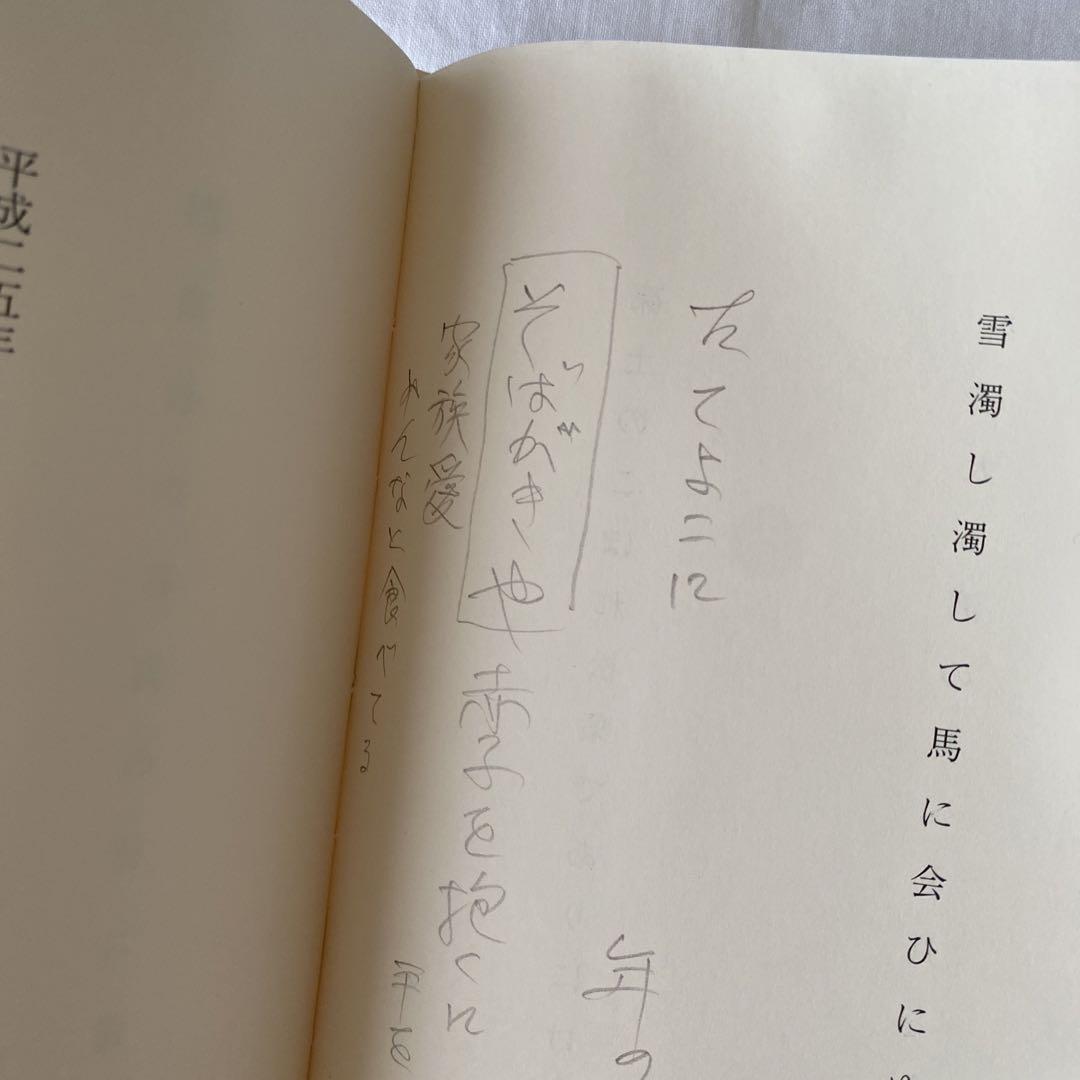 雪濁し濁して馬に会ひに
たてよこに
年の
そばがきや赤子を抱くに
家族愛
みんなと食べてる
手を
平成二五年